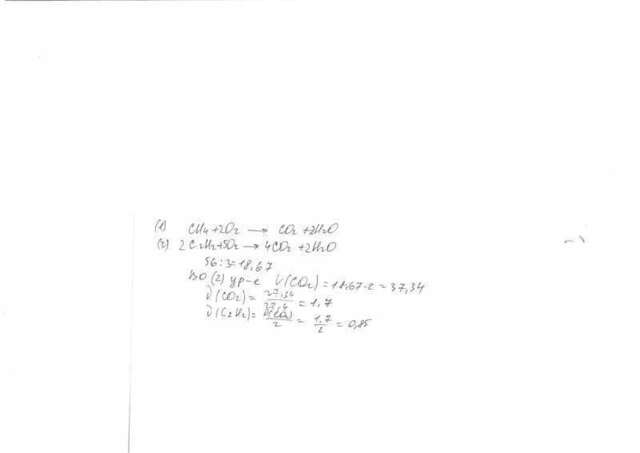 (1) CH4+2O2 → CO2 +2H2O
(2) 2C2H2+5O2→4CO2 +2H2O
56:3=18,67
Во (2) ур-е V(CO2)=18,67·2=37,34
ν(CO2)= 37,34/22,4 = 1,7
ν(C2H2)= ν(CO2)/2 = 1,7/2 = 0,85